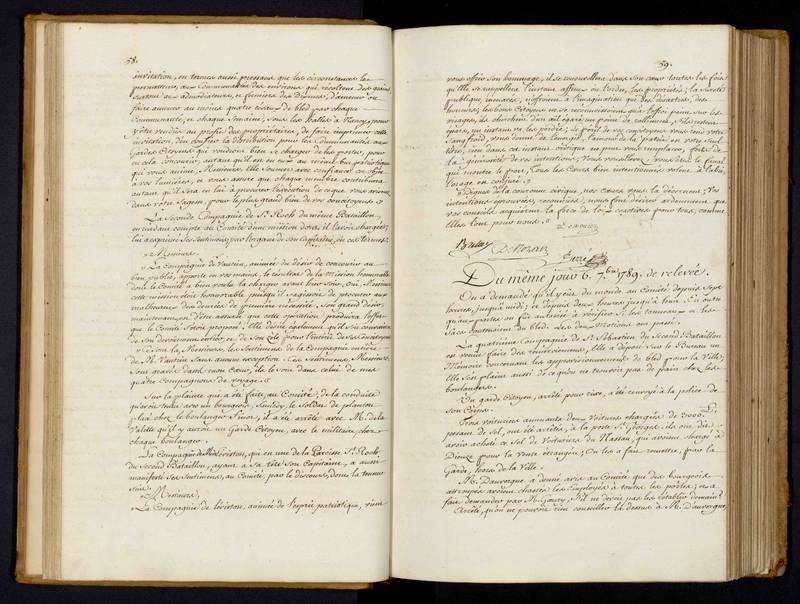 58.
invitation, en termes aussi pressans que les circonstances le
permettent, aux Communautés des environs qui récoltent des grains
faire amener au moins quatre resaux de bled par chaque
Communauté, et chaque Semaine, Sous les halles à Nancy, pour
y être vendus au profit des propriétaires, de faire imprimer cette
invitation, d'en confier la distribution pour les Communautés aux
Gardes Citoyens qui voudront bien se charger de les porter, pour
en cela concourir, autant qu'il en est au même but patriotique
qui vous anime, Messieurs, elle Soumet avec confiance ce objet
à vos lumières, et vous assure que chaque membre contribuera
autant qu'il Sera en lui à procurer l'exécution de ce que vous aurez
dans votre Sagesse, pour le plus grand bien de vos concitoyens.
La Seconde Compagnie de St. Roch du même Bataillon,
en rendant compte au Comité d'une mission dont il l'avoit chargée,
lui a exprimé Ses Sentimens, par l'organe de son Capitaine, en ces termes.
"Messieurs,
"La Compagnie de Vautrin, animée du désir de concourir au
bien public, apporte en vos mains, le résultat de la Mission honorable
dont le Comité a bien voulu la charger avant hier Soir. Oui, Messieurs
cette mission étoit honorable puisqu'il s'agissoit de procurer aux
malheureux des denrées de première nécessité. Son grand désir
maintenant, est d'être assurée que cette opération produira l'effet
que le Comité s'étoit proposé. Elle désire également qu'il Soit convaincu
de Son dévouement entier, et de Son zèle pour l'intérêt de ses Concitoyens
Voilà, Messieurs, les Sentimens de la Compagnie entière
de M. Vautrin Sans aucune exception. Ces Sentimens, Messieurs,
Sont gravés dans mon Cœur, ils le sont dans celui de mes
quatre Compagnons de voyage."
Sur la plainte qui a été faite, au Comité, de la conduite
qu'avoit tenue avec un bourgeois, Samedy, le Soldat de planton
placé chez le boulanger Sivor, il a été arrêté avec M. de la
Valette qu'il y auroit un Garde Citoyen, avec le militaire, chez
chaque boulanger.
La Compagnie de Léviston, qui est une de la Paroisse St. Roch
du Second Bataillon, ayant à sa tête Son Capitaine, a aussi
manifesté Ses Sentimens, au Comité, par le discours, dont la teneur
Suit.
"Messieurs,
La Compagnie de Léviston, animée de l'esprit patriotique, vient
59.
vous offrir Son hommage, il se renouvellera dans Son cœur toutes les fois
qu'elle Se rappellera l'instant affreux où l'ordre, les propriétés, la Sureté
publique, menacés, n'offroient à l'imagination que des désastres, des
horreurs; les bons Citoyens ne se reconnoissoient qu'à l'effroi peint Sur les
visages, ils cherchoient d'un œil égaré un point de ralliment, S'ils restent
épars, un instant va les perdre; le péril de vos concitoyens vous rend votre
Sang froid, vous donne de l'énergie, l'amour de la patrie en votre Seul
but, rien dans cet instant critique ne peut vous remplacer, forts de
la générosité de vos intentions, Vous vous élevez, vous êtes le fanal
qui montre le port, Tous les Cœurs bien intentionnés volent à l'abri,
l'orage est conjuré."
"Dignes de la couronne civique, nos Cœurs vous la décernent; Vos
intentions éprouvées, reconnues, nous font désirer ardemment que
vos conseils acquièrent la force de loix coactives pour tous, comme
Elles l'ont pour nous."
Du même jour 6. 7bre 1789. de relevée.
On a demandé qu'il y eût du monde au Comité depuis Sept
heures, jusqu'à midi; et depuis deux heures jusqu'à huit. En outre
qu'aux portes on fût autorisé à vérifier Si les tonneaux et les
caisses contenoient du bled. Les deux Motions ont passé.
La quatrième Compagnie de St. Sébastien du Second Bataillon
est venue faire des remercimens, Elle a déposé Sur le Bureau un
Mémoire concernant les approvisionnemens de bled pour la Ville;
Elle S'est plaint aussi de ce qu'on ne trouvoit pas de pain chez les
boulangers.
Un garde Citoyen, arrêté pour ivre, a été renvoyé à la police de
Son Corps.
Trois voituriers amenants deux Voitures chargées de 3000.
pesant de Sel, ont été arrêtés, à la porte St. Georges; ils ont dit
avoir acheté ce Sel de Voituriers du Nassau, qui avoient chargé à
Dieuze pour la vente étrangère; On les a fait remettre, par la
Garde, hors de la Ville.
M. Dauvergne a donné avis au Comité que des bourgeois
attroupés avoient chassé les Employés à toutes les portes; et a
fait demander par M. Gouvy, S'il ne devoit pas les rétablir demain?
Arrêté, qu'on ne pouvoit rien conseiller là dessus à M. Dauvergne,